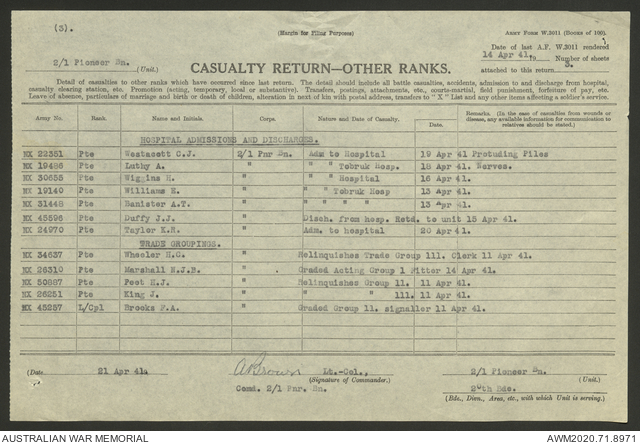 (3).
(Margin for Filing Purposes)
ARMY FORM W.3011 (BOOKS OF 100).
Date of last A.F. W.3011 rendered
14 Apr 41. Number of sheets
attached to this return 3.
2/1 Pioneer Bn. (Unit.)
CASUALTY RETURN—OTHER RANKS.
Detail of casualties to other ranks which have occurred since last return. The detail should include all battle casualties, accidents, admission to and discharge from hospital,
casualty clearing station, etc. Promotion (acting, temporary, local or substantive). Transfers, postings, attachments, etc., courts-martial, field punishment, forfeiture of pay, etc.
Leave of absence, particulars of marriage and birth or death of children, alteration in next of kin with postal address, transfers to "X" List and any other items affecting a soldier's service.
Army No. Rank. Name and Initials. Corps. Nature and Date of Casualty. Date. Remarks. (In the case of casualties from wounds or disease, any available information for communication to relatives should be stated.)
HOSPITAL ADMISSIONS AND DISCHARGES.
NX 22351 Pte Westacott C.J. 2/1 Pnr Bn. Adm to Hospital 19 Apr 41 Protuding Piles
NX 19486 Pte Luthy A. " " " Tobruk Hosp. 18 Apr 41. Nerves.
NX 30655 Pte Wiggins H. " " " Hospital 16 Apr 41
NX 19140 Pte Williams E. " " " Tobruk Hosp 13 Apr 41.
NX 31448 Pte Banister A.T. " " " " " 13 Apr 41.
NX 45596 Pte Duffy J.J. " Disch. from hosp. Retd. to unit 15 Apr 41.
NX 24970 Pte Taylor K.R. " Adm. to hospital 20 Apr 41.
TRADE GROUPINGS.
NX 34637 Pte Wheeler H.C. " Relinquishes Trade Group 111. Clerk 11 Apr 41.
NX 26310 Pte Marshall N.J.B. " Graded Acting Group 1 Fitter 14 Apr 41.
NX 50887 Pte Peet H.J. " Relinquishes Group 11. 11 Apr 41.
NX 26251 Pte King J. " " " 111. 11 Apr 41.
NX 45257 L/Cpl Brooks F.A. " Graded Group 11. signaller 11 Apr 41.
(Date 21 Apr 41. A Brown Lt.-Col., 2/1 Pioneer Bn.
(Signature of Commander.) (Unit.)
Comd. 2/1 Pnr. Bn. 20th Bde.
(Bde., Divn., Area, etc., with which Unit is serving.)
AUSTRALIAN WAR MEMORIAL AWM2020.71.8971